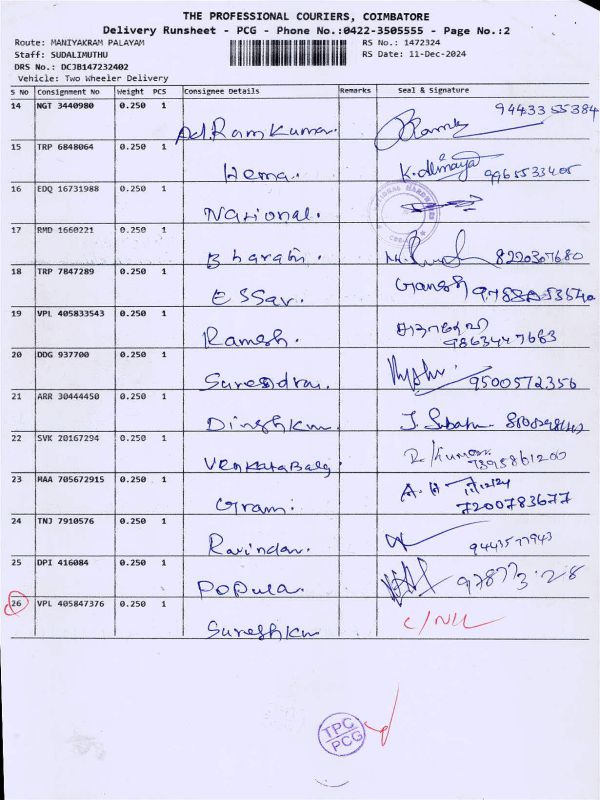 THE PROFESSIONAL COURIERS, COIMBATORE
Delivery Runsheet - PCG - Phone No.:0422-3505555 - Page No.:2
Route: MANIYAKRAM PALAYAM
RS No.: 1472324
Staff: SUDALIMUTHU
RS Date: 11-Dec-2024
DRS No.: DC3B147232402
Vehicle: Two Wheeler Delivery
S No Consignment No Weight PCS Consignee Details Remarks Seal & Signature
14 NGT 3440980 0.250 1 9443355384
Ram Kumar.
15 TRP 6848064 0.250 1
Hema. 9965533405
16 EDQ 16731988 0.250 1
National.
17 RMD 1660221 0.250 1
Bharathi. 8220307680
18 TRP 7847289 0.250 1 Ganesh
ESSar.
19 VPL 405833543 0.250 1
Ramesh. 9863447683
20 DDG 937700 0.250 1
Surendran. 9500572356
21 ARR 30444450 0.250 1
Dineshkum.
22 SVK 20167294 0.250 1 R/Kumar
Venkatabalg. 7895861200
23 MAA 705672915 0.250 1 A. H 11/12/24
Gram. 7200783677
24 TNJ 7910576 0.250 1
Ravindan. 9443577943
25 DPI 416084 0.250 1
Popula.
26 VPL 405847376 0.250 1 C/NU
Sureshkum
TPC
PCG